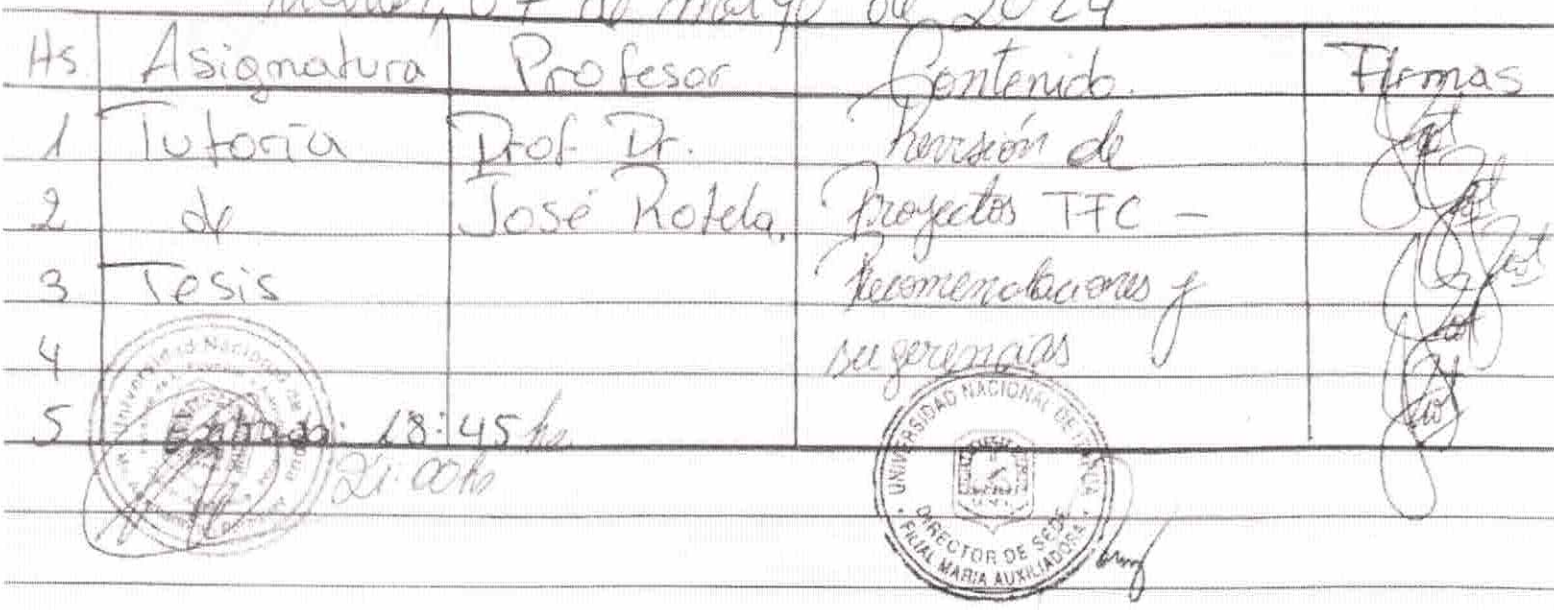 07 de marzo de 2024
Hs. Asignatura Profesor Contenido. Firmas
1 Tutoria Prof. Dr. Revisión de
2 de José Rotela, Proyectos TFC -
3 Tesis Recomendaciones y
4 sugerencias
5 Entrada: 18:45 hs
21:00 hs
Universidad Nacional de Itapúa
UNIVERSIDAD NACIONAL DE ITAPUA
DIRECTOR DE SEDE
FILIAL MARIA AUXILIADORA